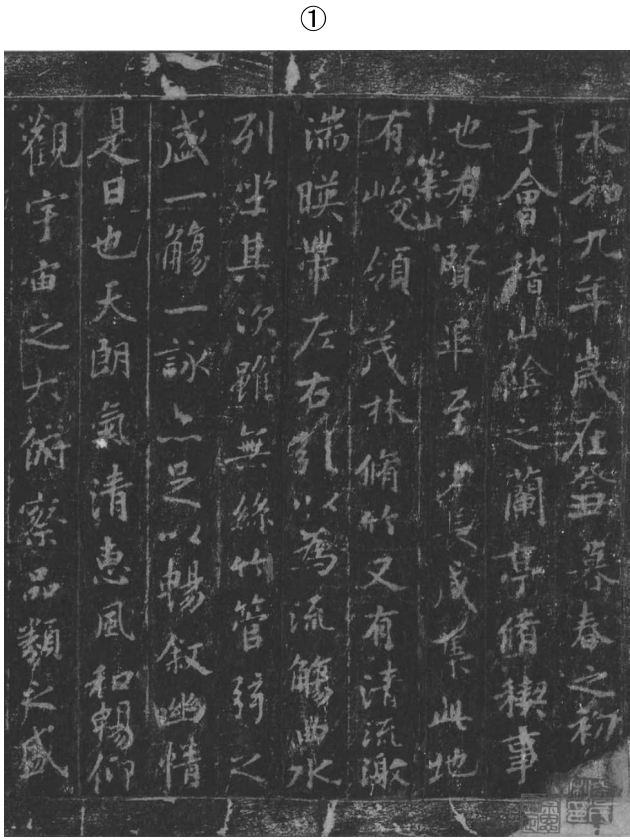 ①
永和九年歲在癸丑暮春之初
于會稽山陰之蘭亭脩稧事
也群賢畢至少長咸集此地
有崇山峻領茂林脩竹又有清流激
湍暎帶左右引以為流觴曲水
列坐其次雖無絲竹管弦之
盛一觴一詠亦足以暢敘幽情
是日也天朗氣清惠風和暢仰
觀宇宙之大俯察品類之盛